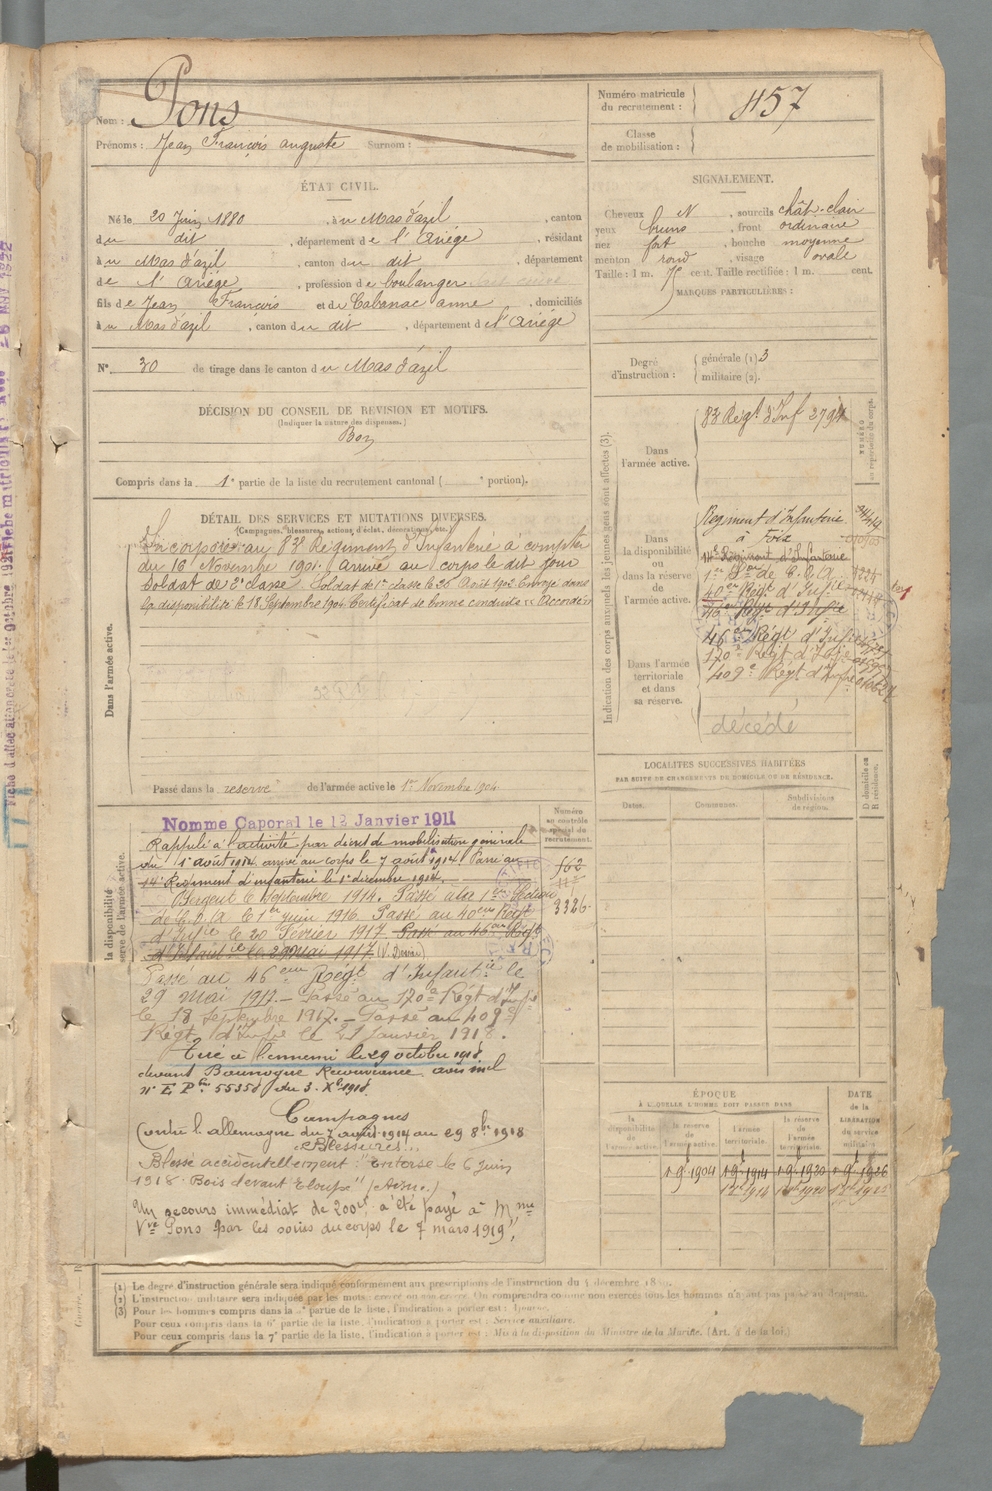 Nom : Pons
Prénoms : Jean François auguste Surnom :
Numéro matricule du recrutement : 457
Classe de mobilisation :
ÉTAT CIVIL.
Né le 20 Juin 1880, à u Mas d'azil, canton
du dit, département de l'Ariège, résidant
à u Mas d'azil, canton du dit, département
de l'Ariège, profession de boulanger
fils de Jean François et de Cabanac anne, domiciliés
à u Mas d'azil, canton du dit, département d l'Ariège
N° 30 de tirage dans le canton du Mas d'azil
DÉCISION DU CONSEIL DE RÉVISION ET MOTIFS.
(Indiquer la nature des dispenses.)
Bon
Compris dans la 1e partie de la liste du recrutement cantonal ( e portion).
SIGNALEMENT.
Cheveux N, sourcils chât-clair
yeux bruns, front ordinaire
nez fort, bouche moyenne
menton rond, visage ovale
Taille : 1 m. cent. Taille rectifiée : 1 m. cent.
MARQUES PARTICULIÈRES :
Degré d'instruction : générale (1) 3
militaire (2).
DÉTAIL DES SERVICES ET MUTATIONS DIVERSES.
(Campagnes, blessures, actions d'éclat, décorations, etc.)
Dans l'armée active.
Incorporé au 83e Régiment d'Infanterie à compter
du 16 Novembre 1901. arrivé au corps le dit jour
Soldat de 2e classe. Soldat de 1e classe le 26 Août 1902. Envoyé dans
la disponibilité le 18 Septembre 1904. Certificat de bonne conduite "Accordé"
Passé dans la réserve de l'armée active le 1er Novembre 1904
Indication des corps auxquels les jeunes gens sont affectés (3).
NUMÉRO
Dans l'armée active.
83e Régt d'Inf 2794
Dans la disponibilité ou dans la réserve de l'armée active.
Régiment d'Infanterie
à Foix
14e Régiment d'Infanterie
1ère Son de C.O.A.
40e Régt d'Infie
46e Régt d'Infie
Dans l'armée territoriale et dans sa réserve.
46e Régt d'Infie
170e Régt d'Infie
409e Régt d'Infie
décédé
LOCALITÉS SUCCESSIVES HABITÉES
PAR SUITE DE CHANGEMENTS DE DOMICILE OU DE RÉSIDENCE.
Dates. Communes. Subdivisions de région. D domicile ou R résidence.
Numéro au contrôle spécial du recrutement.
3326
Nommé Caporal le 12 Janvier 1911
Rappelé à l'activité par décret de mobilisation générale
du 1e août 1914. arrivé au corps le 7 août 1914. Passé au
14e Régiment d'infanterie le 1e décembre 1914.
Sergent le Septembre 1914. Passé à la 1ère Section
de C.O.A. le 1er juin 1916. Passé au 40ème Régt
d'Infie le 20 Février 1917. Passé au 46e Régt
d'Infantie le 29 Mai 1917.
Passé au 46ème Régt d'Infantie le
29 Mai 1917. – Passé au 170e Régt d'Infie
le 18 Septembre 1917. – Passé au 409e
Régt d'Infie le 21 Janvier 1918.
Tué à l'ennemi le 29 octobre 1918
devant Recouvrance avis mel
n° 55358 du 3. Xbre 1918.
Campagnes
Contre l'allemagne du 7 août 1914 au 29 8bre 1918
Blessures
Blessé accidentellement : "Entorse le 6 juin
1918. Bois devant (Aisne.)
Un secours immédiat de 200f a été payé à Mme
Vve Pons par les soins du corps le 7 mars 1919".
ÉPOQUE
À LAQUELLE L'HOMME DOIT PASSER DANS
la disponibilité de l'armée active. la réserve de l'armée active. l'armée territoriale. la réserve de l'armée territoriale.
DATE de la LIBÉRATION du service militaire.
1-9-1904 1-9-1914 1-9-1920 1-9-1926
(1) Le degré d'instruction générale sera indiqué conformément aux prescriptions de l'instruction du 5 décembre
(2) L'instruction militaire sera indiquée par les mots : exercé ou non exercé. On comprendra comme non exercés tous les hommes n'ayant pas passé au drapeau.
(3) Pour les hommes compris dans la partie de la liste, l'indication à porter est :
Pour ceux compris dans la 6e partie de la liste, l'indication à porter est : Service auxiliaire.
Pour ceux compris dans la 7e partie de la liste, l'indication à porter est : Mis à la disposition du Ministre de la Marine. (Art. 4 de la loi.)